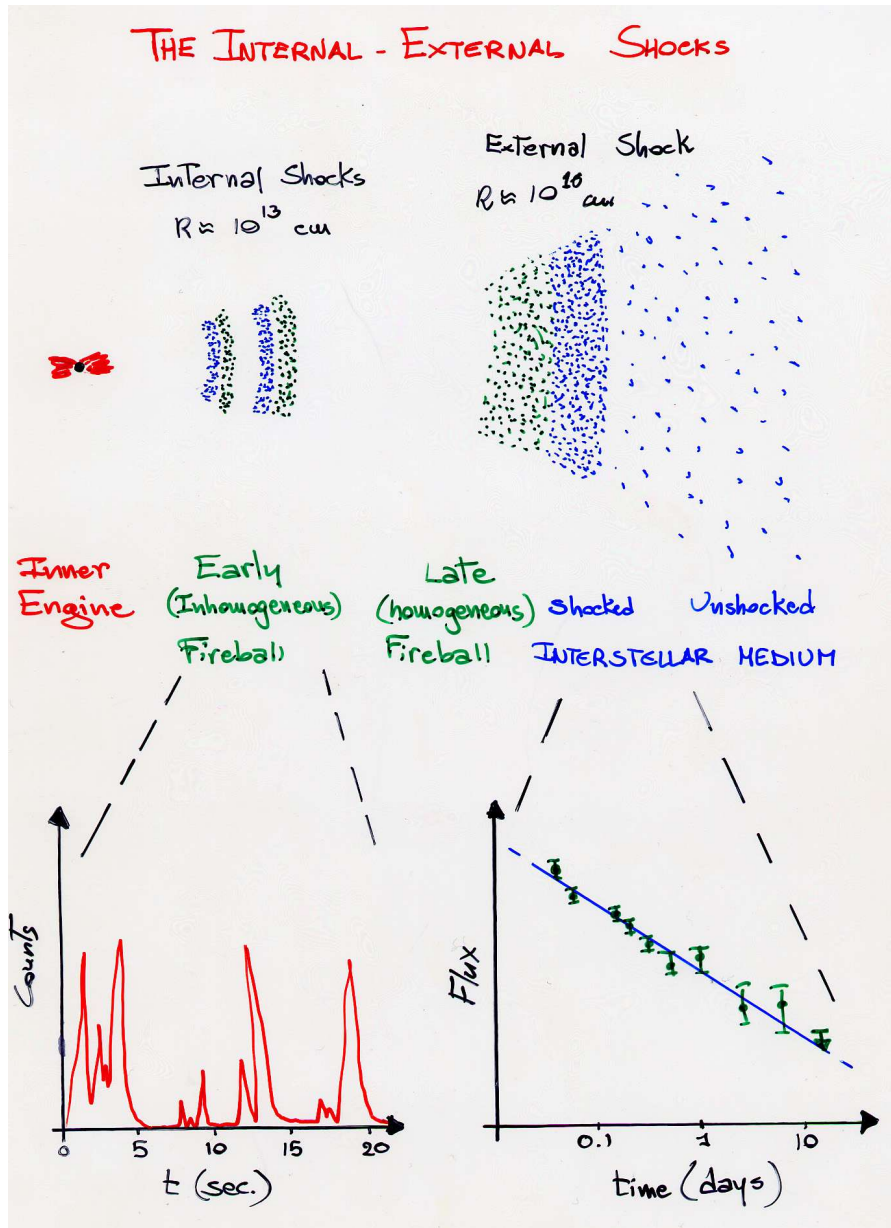 THE INTERNAL - EXTERNAL SHOCKS
External Shock
R ≈ 10^16 cm
Internal Shocks
R ≈ 10^13 cm
Inner
Engine
Early
(Inhomogeneous)
Fireball
Late
(homogeneous)
Fireball
Shocked Unshocked
INTERSTELLAR MEDIUM
Counts
0 5 10 15 20
t (sec.)
Flux
0.1 1 10
time (days)